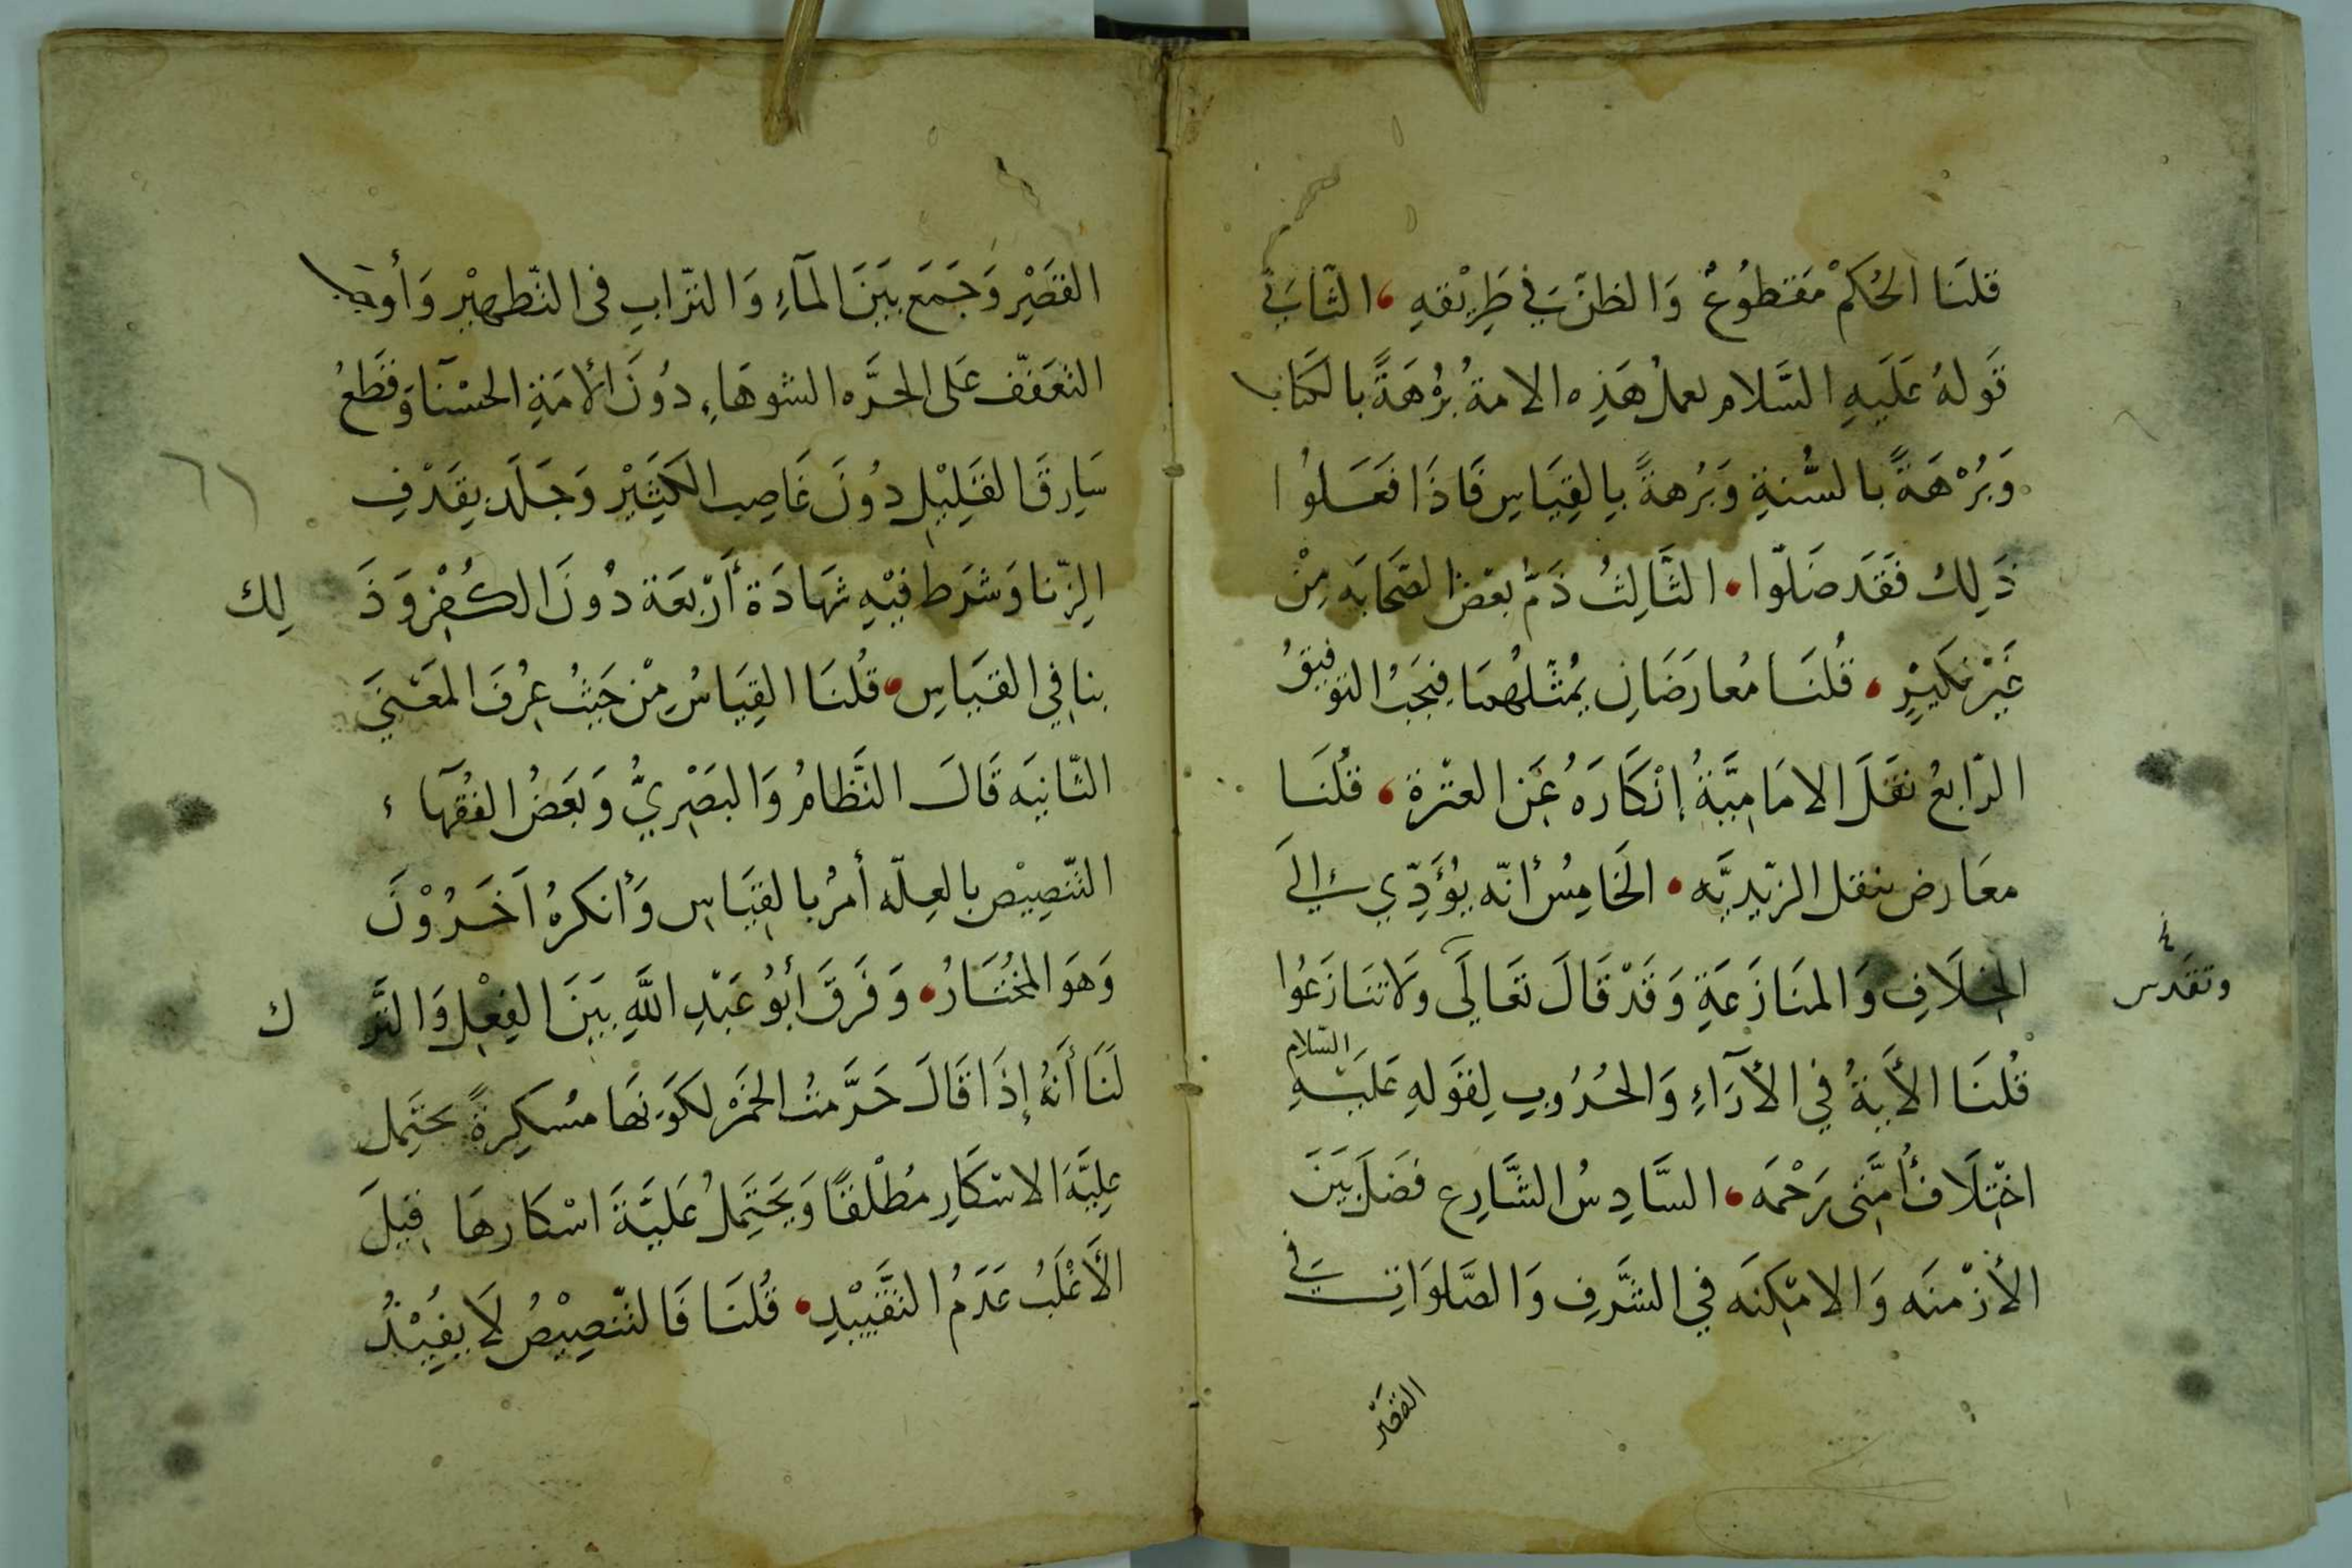 قلنَا الحُكمْ مَقطُوعٌ وَالظنَّ في طَرِيْقهِ، الثَّاني
قَولهُ عَلَيهِ السَّلام لعملُ هَذِه الامةُ بُرْهَةً بالكتاب
وَبُرْهَةً بالسُّنةِ وَبُرهةً بالقِيَاسِ فَاذَا فَعَلوُا
ذَلِكَ فَقَد ضَلّوا، الثَّالِثُ ذَمُّ بعْض الصَّحَابَه مِنْ
غَيْرِ نكَيْرٍ، قُلنَا مُعارَضَانِ بمُثلهُما فيجَبُ التوفيقُ
الرّابعُ نقَلَ الامَامِيَّةُ إنْكَارَهُ عَنِ العتْرةِ، قلُنَا
معَارض بنقل الزيديَّه، الخَامِسُ أنّه يُؤَدّي إلى
الخِلَافِ وَالمنَازَعَةِ وَقَدْ قَالَ تَعَالَى وَلَا تنَازَعُوا
قُلنَا الأَيةُ في الأرَاءِ وَالحُرُوبِ لِقَولهِ عَليْهِ السّلام
اخْتِلَافُ أمَّتى رَحْمَه، السَّادِسُ الشَّارِع فصَلَ بَيَنَ
الأزْمنَه وَالامْكِنَه في الشَّرفِ وَالصَّلوَاتِ في
القصر
القَصْرِ وَجَمَعَ بَيَنَ المآءِ وَالترّابِ فى التّطهيْر وَأوجب
التعَفّف عَلى الحرَّه الشوهَاءِ دُونَ الأمَةِ الحسْنآ وَقَطعُ
سَارِقَ القَلِيْلِ دُونَ غَاصِبِ الكَثِيْرِ وَجَلَد بِقَذْفِ
الزِّنا وَشرَط فيْهِ شهَادَة أَرْبعَة دُونَ الكُفْرِ وَذَلِك
ينافي القياسِ، قُلنَا القِيَاسُ مِنْ حَيثُ عِرُفَ المعْنىَ
الثّانيَه قَالَ النَّظامُ وَالبَصْريُّ وَبَعَضُ الفُقهآء
التّنصِيْص بالعِلّه أمرٌ بالقِيَاسِ وَأنكرهُ آخَرُوْنَ
وَهوَ المخُتَارُ، وَفَرَقَ أبُو عَبْدِ اللَّهِ بَيَنَ الفِعْلِ وَالتَّرك
لنَا أنَهُ إذَا قَالَ حَرَّمتُ الخَمَرْ لكَونهَا مسُكِرةً يحتَمِل
عِليَّهَ الاسكَارِ مُطْلقًا وَيَحتَمِلُ عَليَّةَ اسْكارهَا قيلَ
الأَغْلَبُ عَدَمُ التقَّييْدِ، قُلنَا فَالتّنصِيْصُ لَا يفُيْدُ